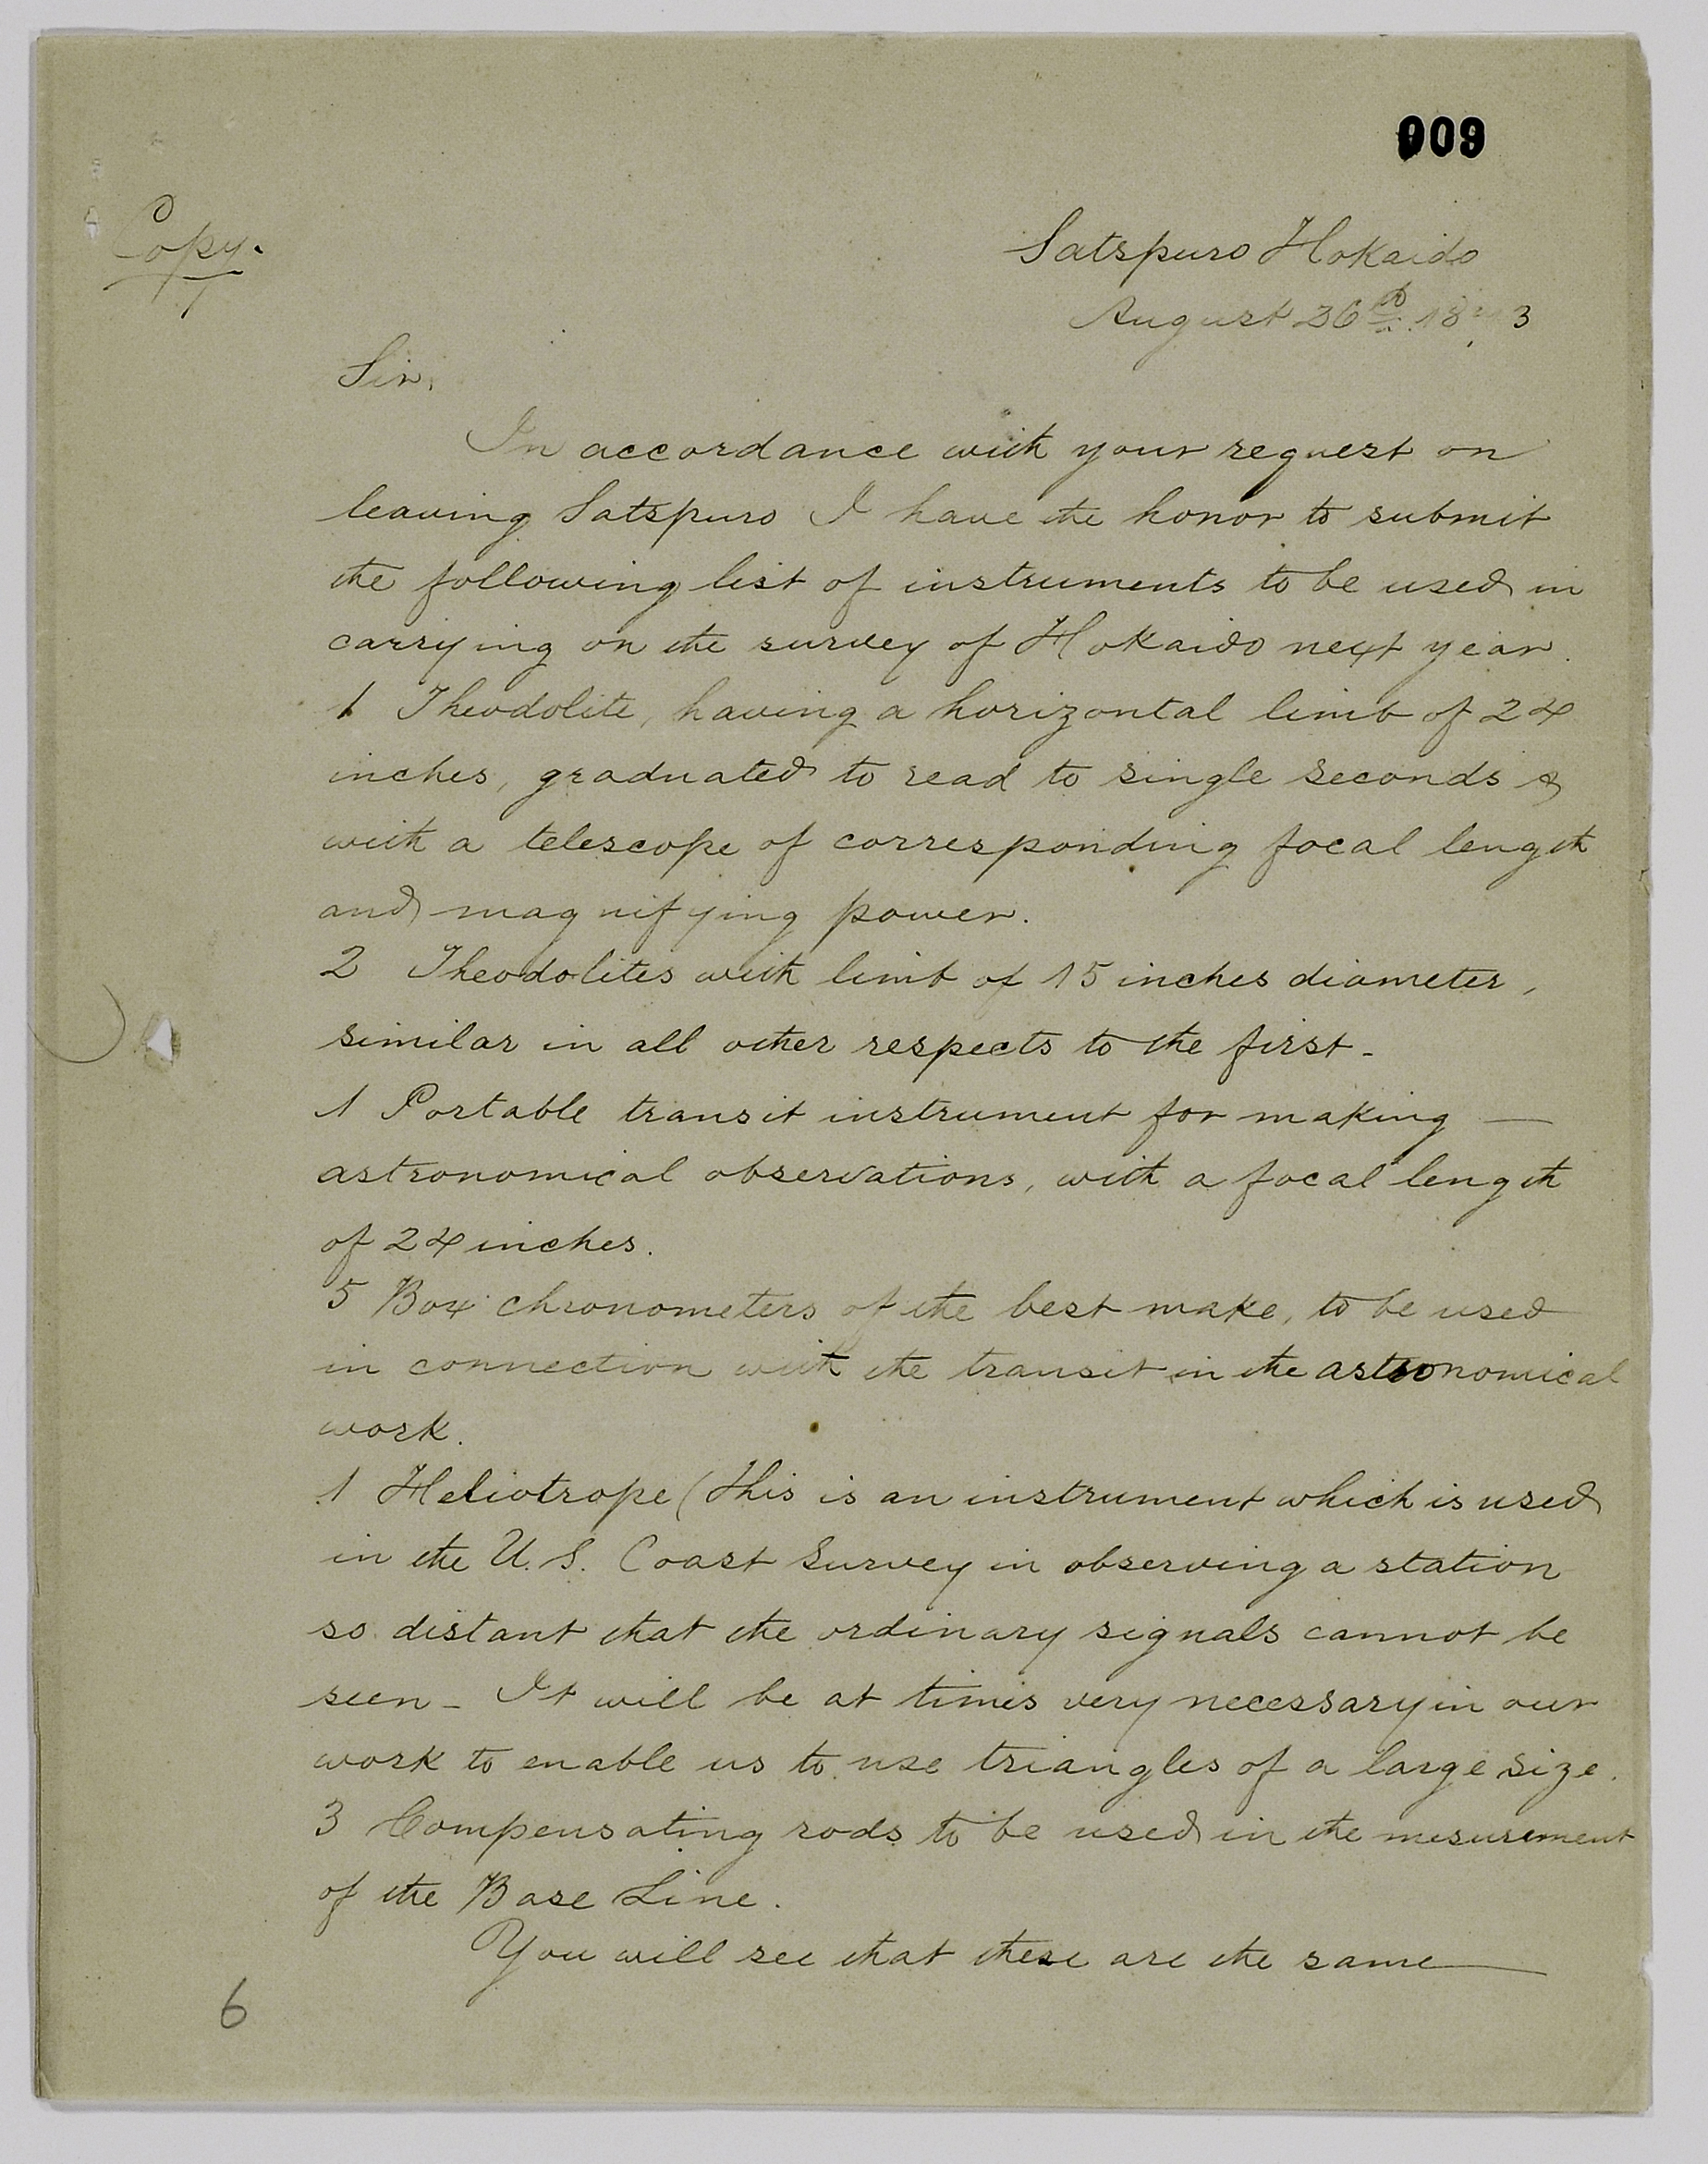 009
Copy.
Satspuro Hokaido
August 26th
Sir,
In accordance with your request on
leaving Satspuro I have the honor to submit
the following list of instruments to be used in
carrying on the survey of Hokaido next year.
1 Theodolite, having a horizontal limb of 24
inches, graduated to read to single seconds &
with a telescope of corresponding focal length
and magnifying power.
2 Theodolites with limb of 15 inches diameter,
similar in all other respects to the first-
1 Portable transit instrument for making —
astronomical observations, with a focal length
of 24 inches.
5 Box chronometers of the best make, to be used
in connection with the transit in the astronomical
work.
1 Heliotrope (This is an instrument which is used
in the U.S. Coast Survey in observing a station
so distant that the ordinary signals cannot be
seen - It will be at times very necessary in our
work to enable us to use triangles of a large size.
3 Compensating rods to be used in the mesurement
of the Base Line.
You will see that these are the same —
6